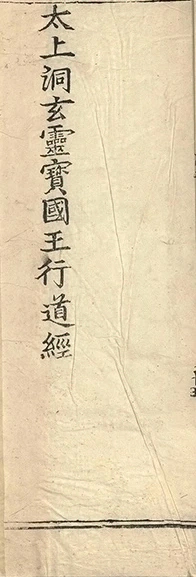 太上洞玄靈寶國王行道經